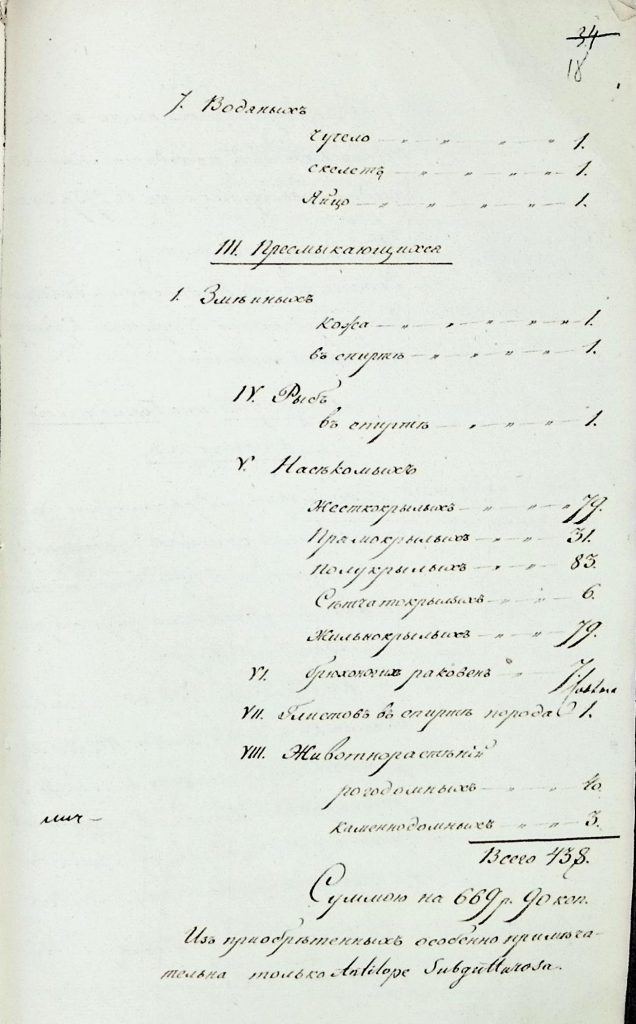 34
18
7. Водяныхъ
чучело — „ „ „ „ 1.
скелетъ — „ „ „ „ 1.
Яйцо — „ „ „ „ 1.
III. Пресмыкающихся
1. Змѣиныхъ
кожа — „ „ „ „ „ 1.
въ спиртѣ — „ „ „ „ 1.
IV. Рыбъ
въ спиртѣ — „ „ „ 1.
V. Насѣкомыхъ
Жесткокрылыхъ — „ „ „ „ 79.
Прямокрылыхъ — „ „ 31.
полукрылыхъ — „ „ 83.
Сѣтчатокрылыхъ — „ „ 6.
Жильнокрылыхъ — „ „ 79.
VI. брюхоногихъ раковенъ „ 7.
VII. Глистовъ въ спиртѣ порода 1.
VIII. Животнорастѣній
рогодомныхъ — „ „ 40.
каменнодомныхъ „ „ 3.
Всего 438.
Суммою на 669 р. 90 коп.
Изъ приобрѣтенныхъ особенно примѣча-
тельна только Antilope Subgutturosa.